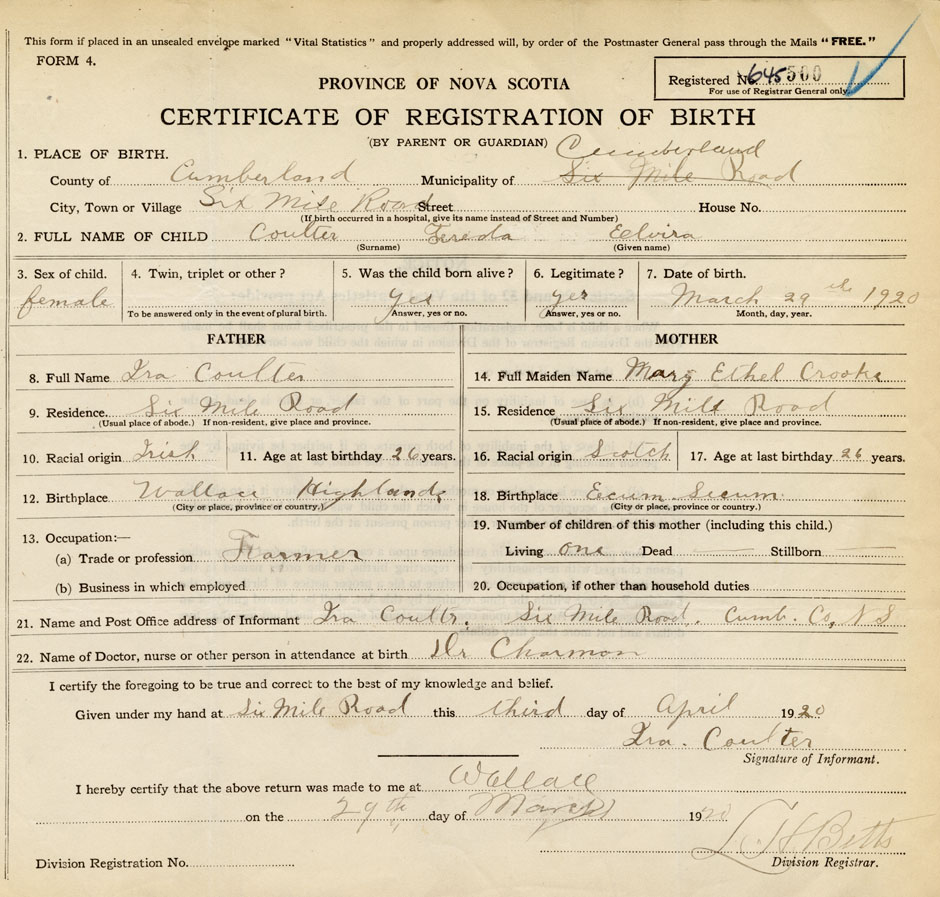 This form if placed in an unsealed envelope marked "Vital Statistics" and properly addressed will, by order of the Postmaster General pass through the Mails "FREE."
FORM 4.
Registered No. 645500
For use of Registrar General only.
PROVINCE OF NOVA SCOTIA
CERTIFICATE OF REGISTRATION OF BIRTH
(BY PARENT OR GUARDIAN)
1. PLACE OF BIRTH.
Cumberland
County of Cumberland Municipality of Six Mile Road
City, Town or Village Six Mile Road Street House No.
(If birth occurred in a hospital, give its name instead of Street and Number)
2. FULL NAME OF CHILD Coulter Fereda Eelvira
(Surname) (Given name)
3. Sex of child. 4. Twin, triplet or other? 5. Was the child born alive? 6. Legitimate? 7. Date of birth.
female yes yes March 29th 1920
To be answered only in the event of plural birth. Answer, yes or no. Answer, yes or no. Month, day, year.
FATHER MOTHER
8. Full Name Ira Coulter
14. Full Maiden Name Mary Ethel Crooks
9. Residence. Six Mile Road
15. Residence Six Mile Road
(Usual place of abode.) If non-resident, give place and province.
(Usual place of abode.) If non-resident, give place and province.
10. Racial origin Irish 11. Age at last birthday 26 years.
16. Racial origin Scotch 17. Age at last birthday 26 years.
12. Birthplace Wallace Highlands
18. Birthplace Ecum Secum
(City or place, province or country.)
(City or place, province or country.)
13. Occupation:—
19. Number of children of this mother (including this child.)
(a) Trade or profession Farmer
Living one Dead — Stillborn —
(b) Business in which employed
20. Occupation, if other than household duties
21. Name and Post Office address of Informant Ira Coulter, Six Mile Road, Cumb. Co, N S
22. Name of Doctor, nurse or other person in attendance at birth Dr Charmon
I certify the foregoing to be true and correct to the best of my knowledge and belief.
Given under my hand at Six Mile Road this third day of April 1920
Ira. Coulter
Signature of Informant.
I hereby certify that the above return was made to me at Wallace
on the 29th day of March 1920
Betts
Division Registrar.
Division Registration No.